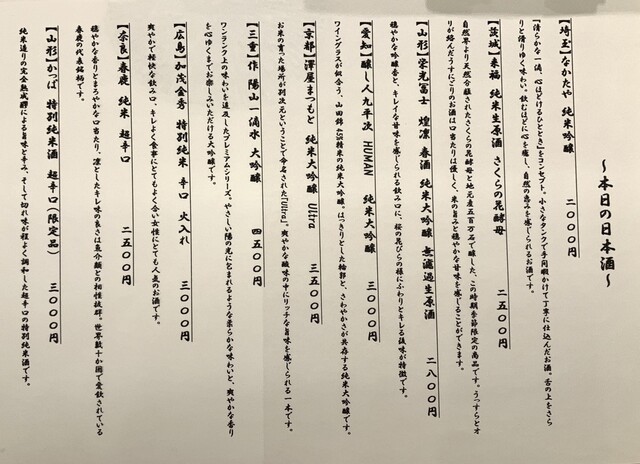 ～本日の日本酒～
【埼玉】なかたや 純米吟醸 二〇〇〇円
「清らかな一滴、心ほどけるひととき」をコンセプト。小さなタンクで手間暇かけて丁寧に仕込んだお酒。舌の上をさら
りと滑りゆく味わい。飲むほどに心を癒し、自然の恵みを感じられるお酒です。
【茨城】来福 純米生原酒 さくらの花酵母 二五〇〇円
自然界より天然分離されたさくらの花酵母と地元産五百万石で醸した、この時期季節限定の商品です。うっすらとオ
リが絡んだうすにごりのお酒は口当たりは優しく、米の旨みと穏やかな甘味を感じることができます。
【山形】栄光冨士 煌凛 春酒 純米大吟醸 無濾過生原酒 二八〇〇円
穏やかな吟醸香と、キレイな甘味を感じられる飲み口に、桜の花びらの様にふわりとキレる後味が特徴です。
【愛知】醸し人九平次 HUMAN 純米大吟醸 三〇〇〇円
ワイングラスが似合う、山田錦45%精米の純米大吟醸。はっきりとした輪郭と、さわやかさが共存する純米大吟醸です。
【京都】澤屋まつもと 純米大吟醸 Ultra 三五〇〇円
お米の育った場所が別次元ということで命名された「Ultra」。爽やかな酸味の中にリッチな旨味を感じられる一本です。
【三重】作 陽山一滴水 大吟醸 四五〇〇円
ワンランク上の味わいを追及したプレミアムシリーズ。やさしい陽の光に包まれるような柔らかな味わいと、爽やかな香り
を心ゆくまでお楽しみいただける大吟醸です。
【広島】加茂金秀 特別純米 辛口 火入れ 三〇〇〇円
爽やかで軽快な飲み口、キレよく食事にとてもよく合い女性にとても人気のお酒です。
【奈良】春鹿 純米 超辛口 二五〇〇円
穏やかな香りとまろやかな口当たり、凛としたキレ味の良さは魚介類との相性抜群。世界数十か国で愛飲されている
春鹿の代表銘柄です。
【山形】かっぱ 特別純米酒 超辛口(限定品) 三〇〇〇円
純米造りの完全熟成醪による旨味と辛み、そして切れ味が程よく調和した超辛口の特別純米酒です。